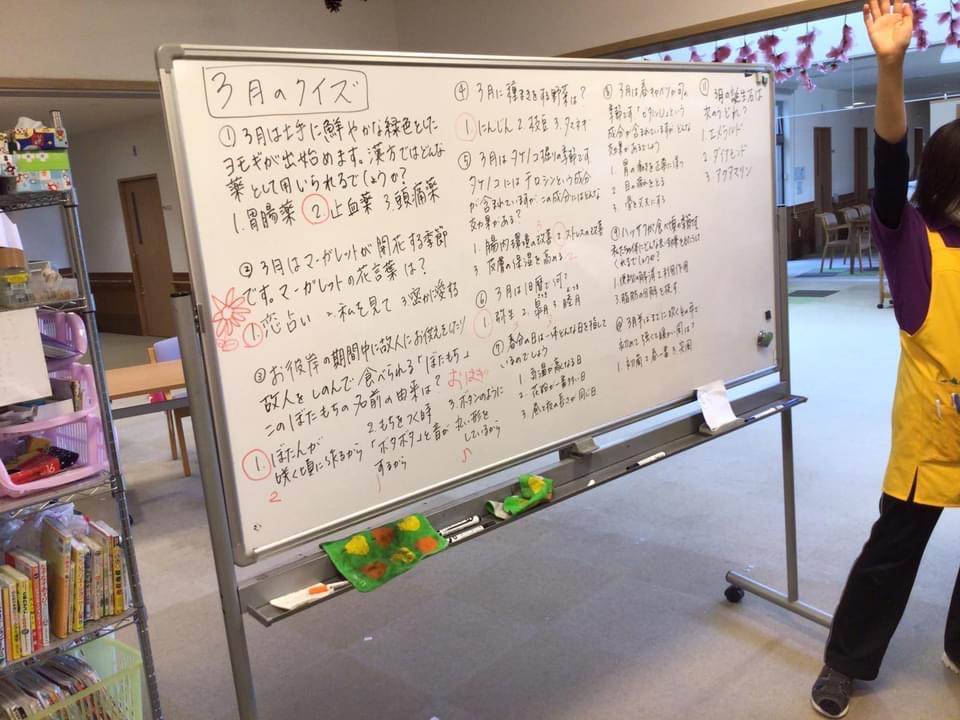 3月のクイズ
①3月は土手に鮮やかな緑色をした
ヨモギが出始めます。漢方ではどんな
薬として用いられるでしょうか?
1.胃腸薬 2.止血薬 3.頭痛薬
②3月はマーガレットが開花する季節
です。マーガレットの花言葉は?
1.恋占い 2.私を見て 3.密かに愛する
③お彼岸の期間中に故人にお供えをしたり
故人をしのんで食べられる「ぼたもち」
このぼたもちの名前の由来は? おはぎ
1.ぼたんが
咲く頃に作るから
2.もちをつく時
「ボタボタ」と音が
するから
3.ボタンのように
丸い形を
しているから
2
④3月に種まきをする野菜は?
1.にんじん 2.枝豆 3.タマネギ
⑤3月はタケノコ掘りの季節です
タケノコにはチロシンという成分
が含まれていますが この成分にはどんな
効果がある?
1.腸内環境の改善 2.ストレスの改善
3.皮膚の保湿を高める
2
⑥3月は旧暦で何?
1.弥生 2.皐月 3.睦月
⑦春分の日は一体どんな日を指して
いるのでしょう
1.気温が最なる日
2.花粉が一番多い日
3.昼と夜の長さが同じ日
⑧3月は春キャベツが旬の
季節です
成分が含まれていますが どんな
効果があるでしょう
1.胃の働きを正常に保つ
2.目の痛みをとる
3.骨を丈夫にする
⑨ハッサクが食べ頃の季節です
くれるでしょうか?
1.便秘の解消 2.利尿作用
3.脂肪の分解を促す
初めて強く暖かい風は?
1.初南 2.春一番 3.突風
⑪3月の誕生石は
次のうちどれ?
1.エメラルド
2.ダイヤモンド
3.アクアマリン